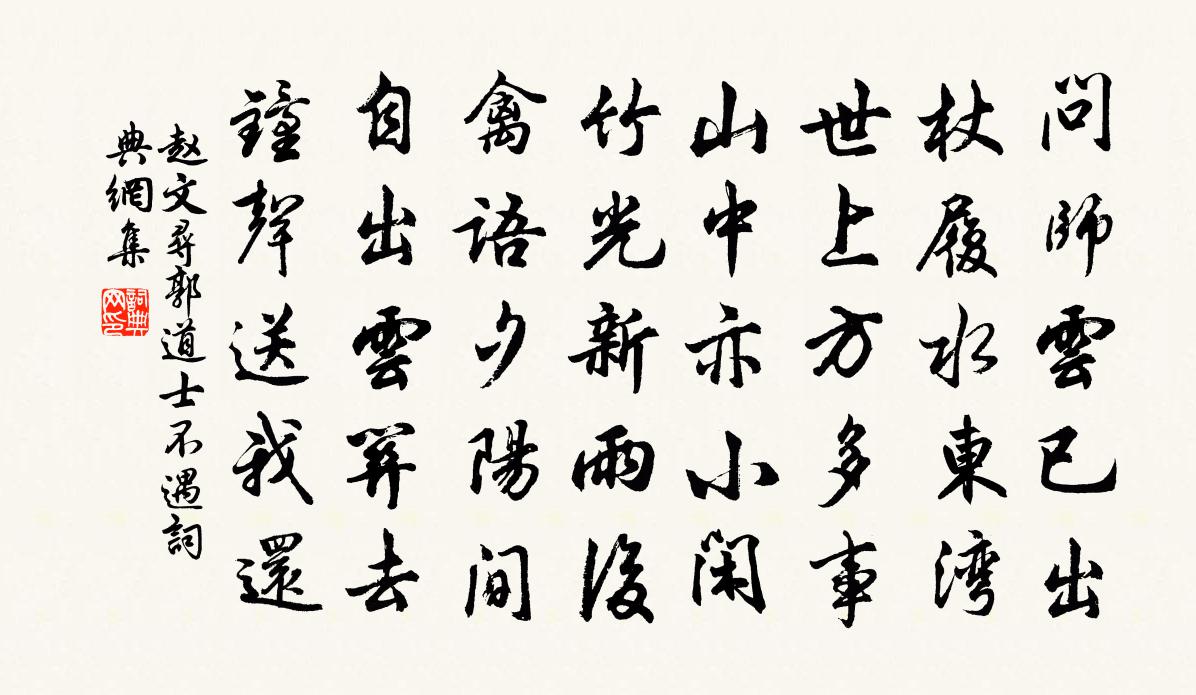 問師雲已出
杖履水東湾
世上方多事
山中亦小閑
竹光新雨後
禽語夕陽間
自出雲關去
鐘聲送我還
赵文尋郭道士不遇詞
典網集
詞典网印